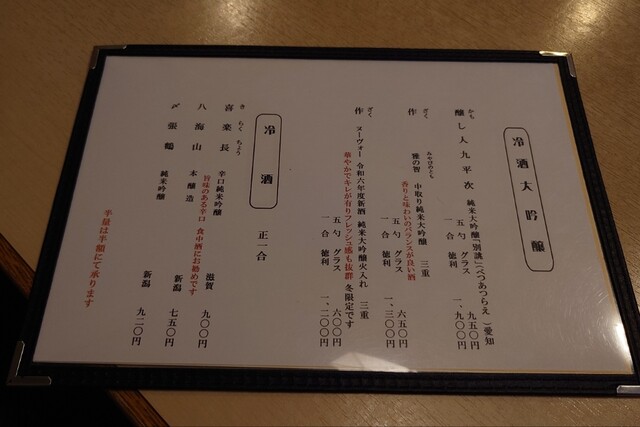 冷酒大吟醸
かも
醸し人九平次 純米大吟醸「別誂」（べつあつらえ）愛知
五勺 グラス 九五〇円
一合 徳利 一、九〇〇円
ざく みやびのとも
作 雅の智 中取り純米大吟醸 三重
香りと味わいのバランスが良い酒
五勺 グラス 六五〇円
一合 徳利 一、三〇〇円
ざく
作 ヌーヴォー 令和六年度新酒 純米大吟醸火入れ 三重
華やかでキレが有りフレッシュ感も抜群 冬限定です
五勺 グラス 六〇〇円
一合 徳利 一、二〇〇円
冷酒 正一合
き らく ちょう
喜楽長 辛口純米吟醸 滋賀 九〇〇円
旨味のある辛口 食中酒にお勧めです
八海山 本醸造 新潟 七五〇円
〆張鶴 純米吟醸 新潟 九二〇円
半量は半額にて承ります